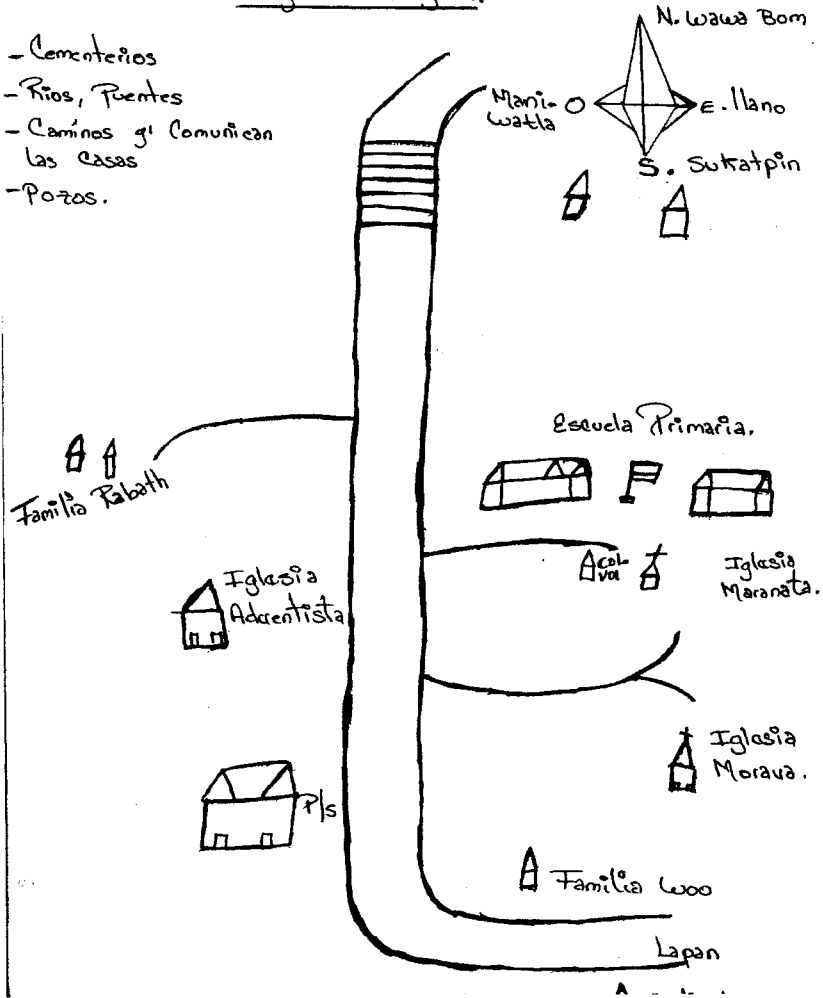 - Cementerios
- Rios, Puentes
- Caminos q' Comunican
las casas
- Pozos.
N. Wawa Bom
Mani-
watla
O
E. llano
S. Sukatpin
Escuela Primaria.
Familia Rabath
COL
VOL
Iglesia
Maranata.
Iglesia
Adventista
Iglesia
Morava.
P/s
Familia Woo
Lapan